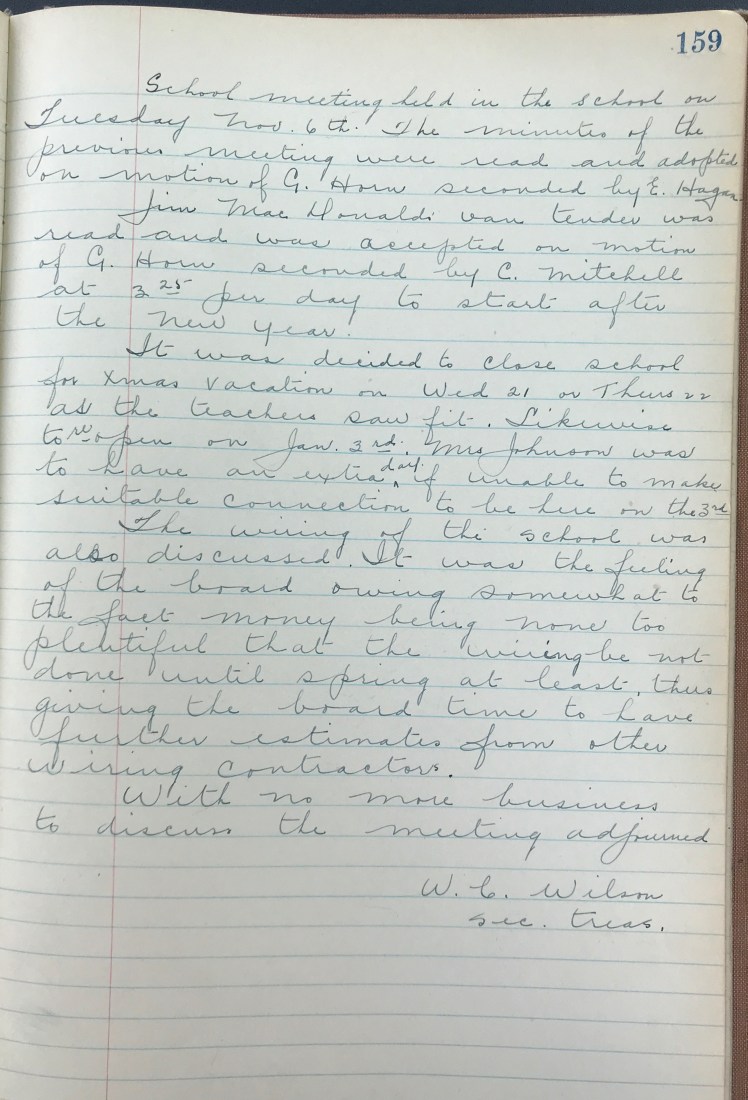 159
School meeting held in the school on
Tuesday Nov. 6th. The minutes of the
previous meeting were read and adopted
on motion of G. Horn seconded by E. Hagan
Jim Mac Donalds van tender was
read and was accepted on motion
of G. Horn seconded by C. Mitchell
at 3 25 per day to start after
the New year.
It was decided to close school
for Xmas vacation on Wed 21 or Thurs 22
as the teachers saw fit. Likewise
to reopen on Jan. 3rd. Mrs Johnson was
to have an extra day if unable to make
suitable connection to be here on the 3rd
The wiring of the school was
also discussed. It was the feeling
of the board owing somewhat to
the fact money being none too
plentiful that the wiring be not
done until spring at least, thus
giving the board time to have
further estimates from other
wiring contractors.
With no more business
to discuss the meeting adjourned
W. C. Wilson
sec. treas.